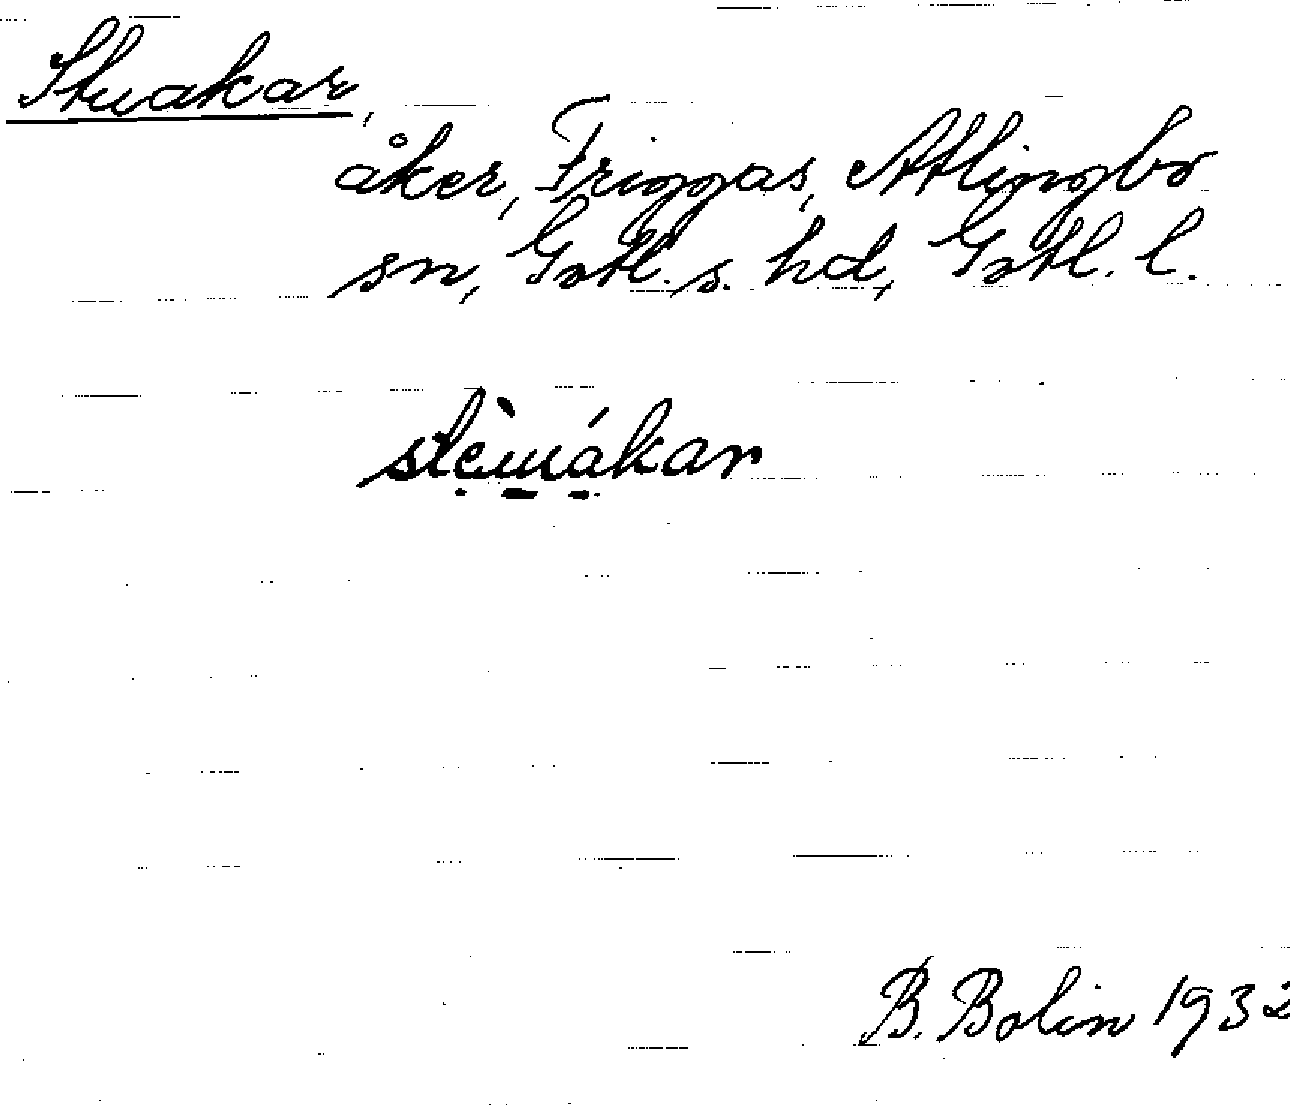 Stuakar,
åker, Friggas, Atlingbo
sn, Gotl. s. hd, Gotl. l.
B. Bolin 1932